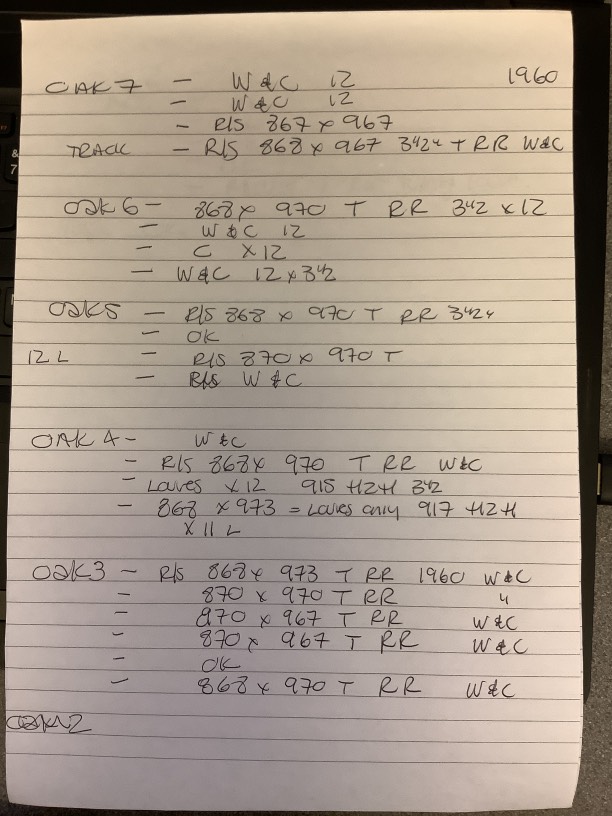 OAK 7 - W&C 12 1960
- W&C 12
- R/S 867 x 967
TRACK - R/S 868 x 967 342 4 T RR W&C
OAK 6 - 868 x 970 T RR 342 x 12
- W&C 12
- C X12
- W&C 12 x 342
OAK 5 - R/S 868 x 970 T RR 342 4
- OK
12 L - R/S 870 x 970 T
- R/S W&C
OAK 4 - W&C
- R/S 868 x 970 T RR W&C
- Louves X12 915 H2H 342
- 868 x 973 = Louves only 917 H2H
X 11 L
OAK 3 - R/S 868 x 973 T RR 1960 W&C
- 870 x 970 T RR "
- 970 x 967 T RR W&C
- 870 x 967 T RR W&C
- OK
- 868 x 970 T RR W&C
OAK 2